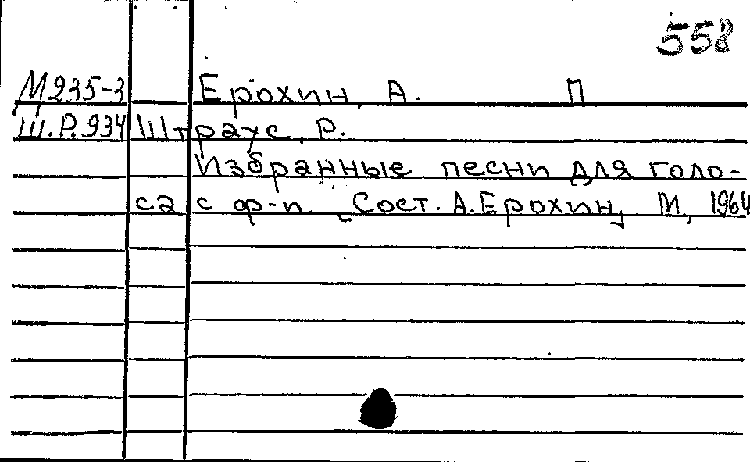 558
М235-3 Ерохин, А. П
Ш.Р.934 Штраус, Р.
Избранные песни для голо-
са с ф-п. [Сост. А.Ерохин], М, 1964